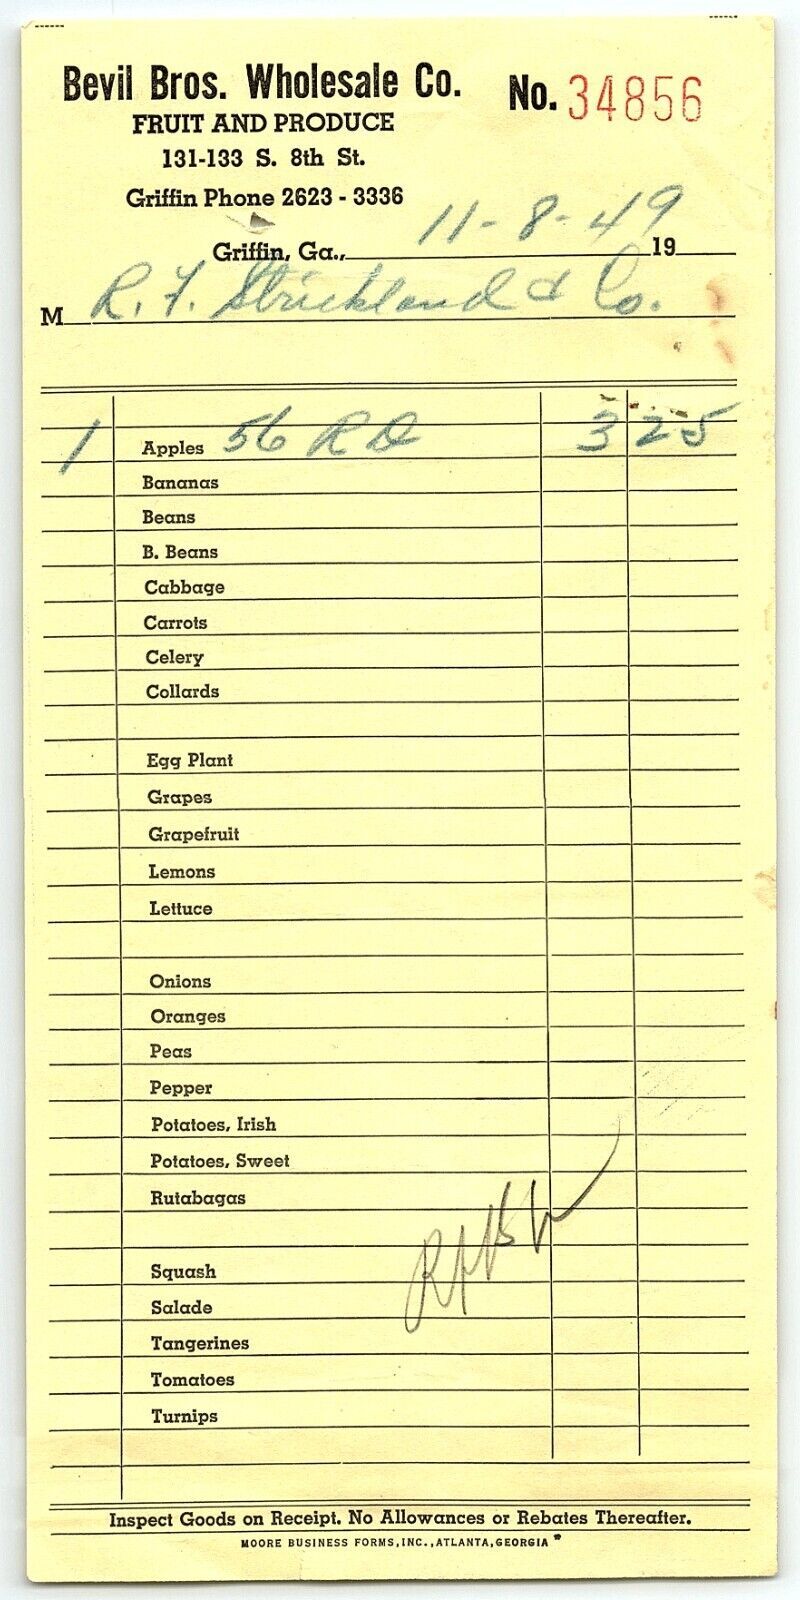 Bevil Bros. Wholesale Co. No. 34856
FRUIT AND PRODUCE
131-133 S. 8th St.
Griffin Phone 2623 - 3336
Griffin, Ga., 11-8-49 19
M R. F. Strickland & Co.
1 Apples 56 R D 3 25
Bananas
Beans
B. Beans
Cabbage
Carrots
Celery
Collards
Egg Plant
Grapes
Grapefruit
Lemons
Lettuce
Onions
Oranges
Peas
Pepper
Potatoes, Irish
Potatoes, Sweet
Rutabagas
Squash
Salade
Tangerines
Tomatoes
Turnips
Inspect Goods on Receipt. No Allowances or Rebates Thereafter.
MOORE BUSINESS FORMS, INC., ATLANTA, GEORGIA